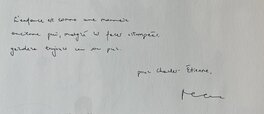 L'enfance est comme une monnaie
ancienne qui, malgré la face estompée,
gardera toujours un or pur.
pour Charles-Étienne,